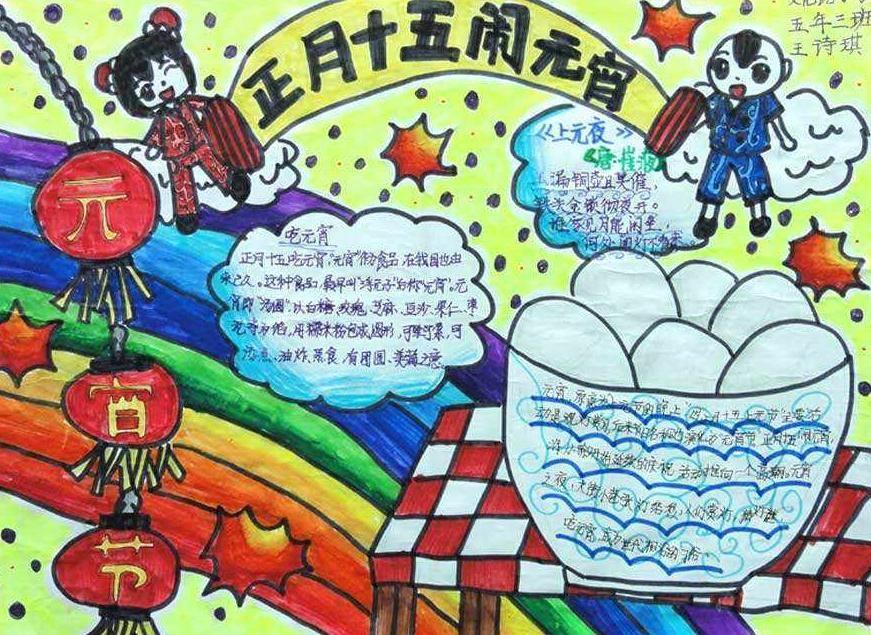 正月十五闹元宵
五年三班
王诗琪
元
宵
节
《上元夜》
唐 崔液
漏铜壶且莫催,
彻夜开。
谁家见月能闲坐,
何处闻灯不看来
吃元宵
正月十五吃元宵"元宵"作为食品,在我国也由
来已久。这种食品,最早叫"浮元子"后称"元宵",元
宵即"汤圆"以白糖、玫瑰、芝麻、豆沙、果仁、枣
泥等为馅,用糯米粉包成圆形,可荤可素,可
油炸、蒸食,有团圆、美满之意。
元宵,原意为上元节的晚上,正月十五上元节主要活
动是观灯赏月,后来节日名称演化为"元宵节"正月十五闹元宵,
将从除夕开始延续的庆祝活动推向一个高潮。元宵
之夜,大街小巷张灯结彩,人们赏灯,猜灯谜,
吃元宵,成为世代相沿的习俗。